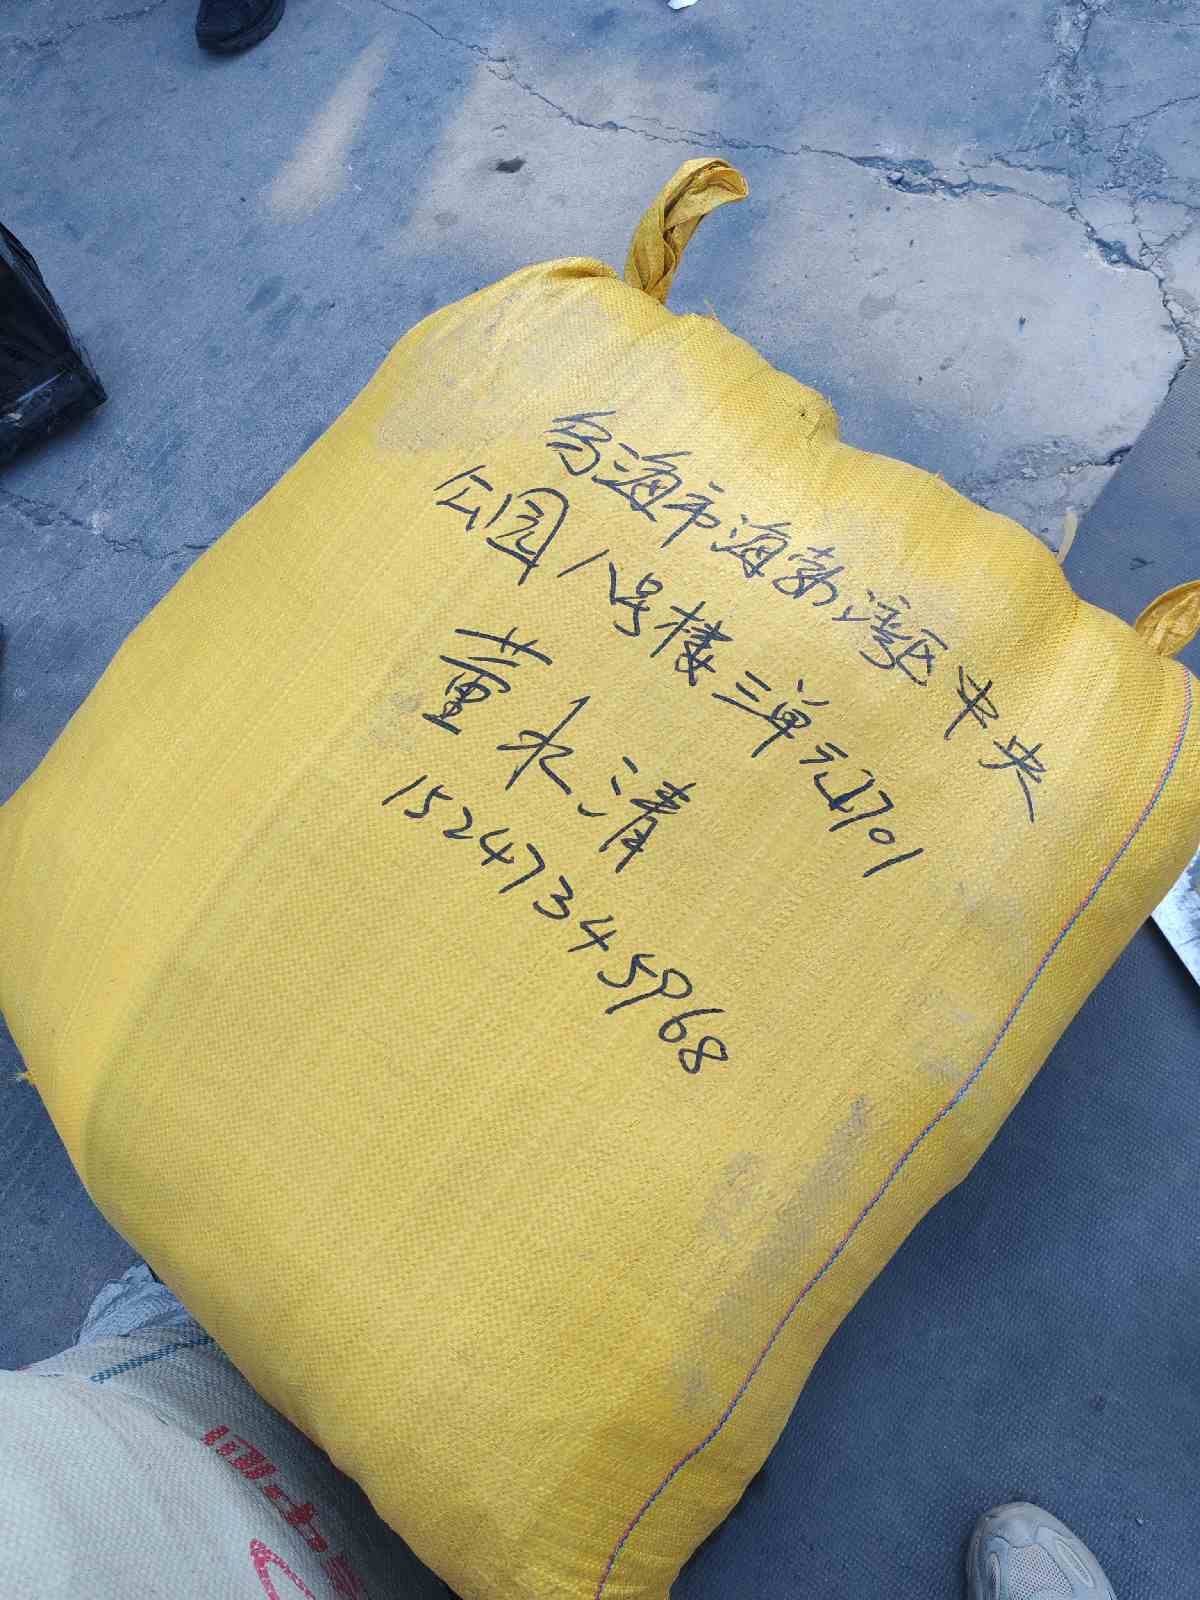 乌海市海勃湾区中央
公园八号楼三单元1701
董永清
15247345968